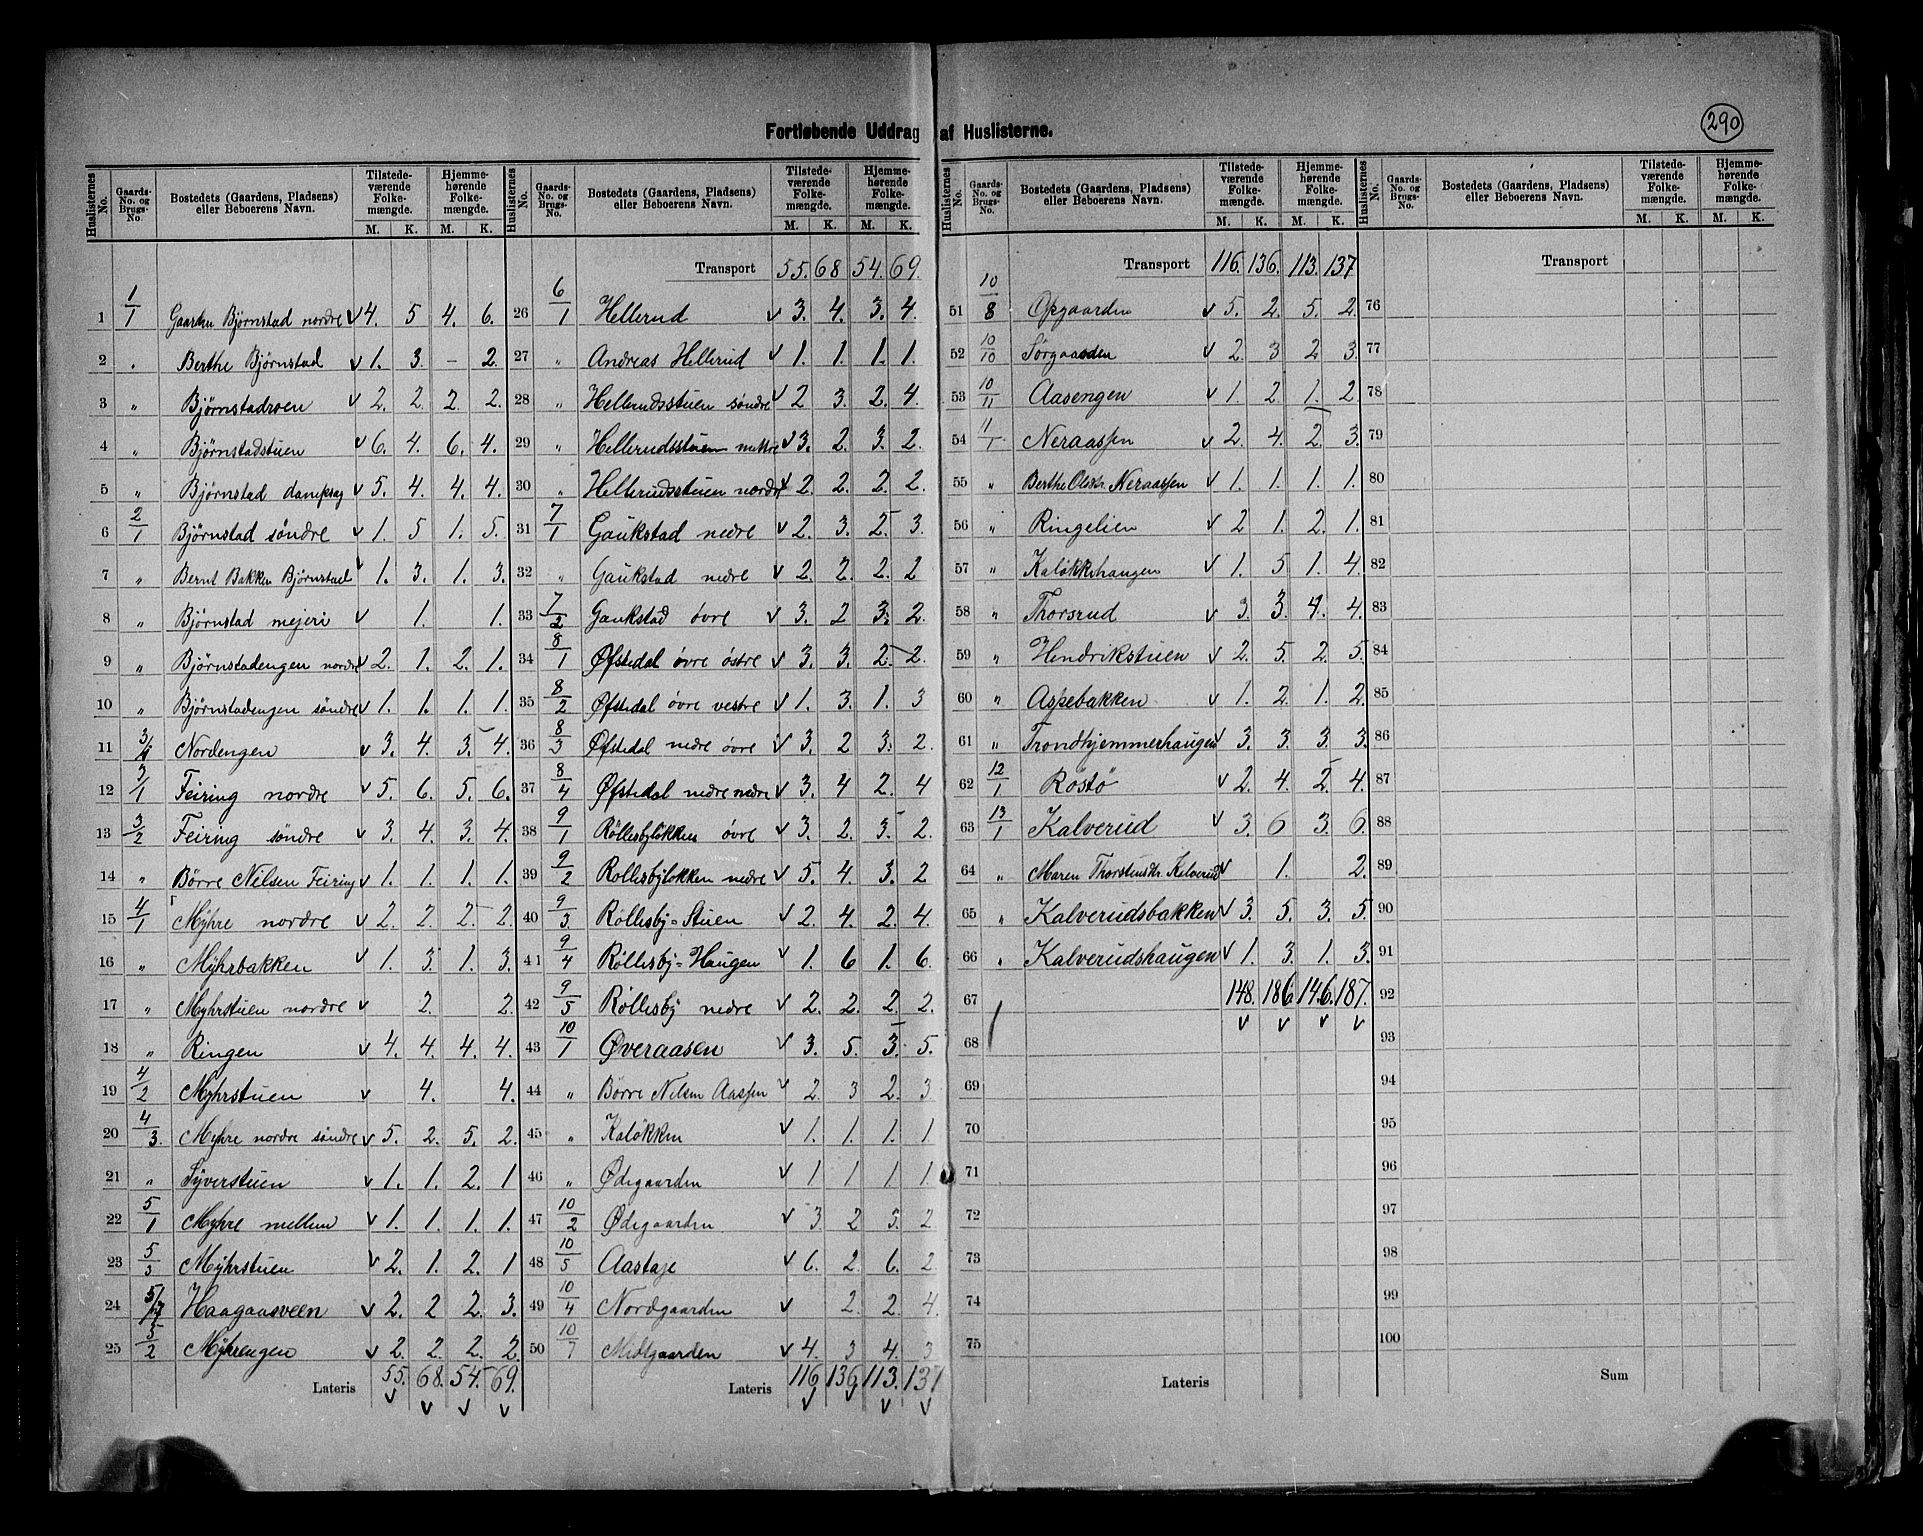 290
Fortløbende Uddrag af Huslisterne.
Huslisternes No. Gaards-No. og Brugs-No. Bostedets (Gaardens, Pladsens) eller Beboerens Navn. Tilstedeværende Folkemængde. M. K. Hjemmehørende Folkemængde. M. K.
1 1/1 Gaarden Bjørnstad nordre v 4. 5 4. 6.
2 " Berthe Bjørnstad v 1. 3. – 2.
3 " Bjørnstadroen v 2. 2. 2. 2.
4 " Bjørnstadstuen v 6. 4. 6. 4.
5 " Bjørnstad dampsag v 5. 4. 4. 4.
6 2/1 Bjørnstad søndre v 1. 5 1. 5.
7 " Bernt Bakken Bjørnstad v 1. 3. 1. 3.
8 " Bjørnstad mejeri v 1. 1.
9 " Bjørnstadengen nordre v 2. 1. 2. 1.
10 " Bjørnstadengen søndre v 1. 1. 1. 1.
11 Nordengen v 3. 4. 3. 4.
12 3/1 Feiring nordre v 5. 6. 5. 6.
13 3/2 Feiring søndre v 3. 4. 3. 4.
14 " Børre Nilsen Feiring v 1. 1. 1. 1.
15 4/1 Myhre nordre v 2. 2. 2. 2.
16 " Myhrbakken v 1. 3. 1. 3.
17 " Myhrstuen nordre v 2. 2.
18 " Ringen v 4. 4. 4. 4.
19 4/2 Myhrstuen v 4. 4.
20 4/3. Myhre nordre søndre v 5. 2. 5. 2.
21 " Tyverstuen v 1. 1. 2. 1
22 5/1 Myhre mellem v 1. 1. 1. 1.
23 5/3 Myhrstuen v 2. 1. 2. 1
24 Haagaasveen v 2. 2 2. 3.
25 5/2 Myhrengen v 2. 2. 2. 2.
Lateris 55. 68. 54. 69.
v v v v
Huslisternes No. Gaards-No. og Brugs-No. Bostedets (Gaardens, Pladsens) eller Beboerens Navn. Tilstedeværende Folkemængde. M. K. Hjemmehørende Folkemængde. M. K.
Transport 55. 68 54. 69.
26 6/1 Hellerud v 3. 4. 3. 4.
27 " Andreas Hellerud v 1. 1. 1. 1.
28 " Hellerudsstuen søndre v 2 3. 2. 4.
29 " Hellerudsstuen mettre v 3. 2. 3. 2.
30 " Hellerudsstuen nordre v 2. 2. 2. 2.
31 7/1 Gaukstad nedre v 2. 3. 2. 3.
32 " Gaukstad nedre v 2. 2. 2. 2
33 7/2 Gaukstad øvre v 3. 2 3. 2.
34 8/1 Øfstedal øvre østre v 3. 3. 2. 2.
35 8/2 Øfstedal øvre vestre v 1. 3. 1. 3
36 8/3 Øfstedal nedre øvre v 3. 2 3. 2.
37 8/4 Øfstedal nedre nedre v 3. 4 2. 4
38 9/1 Røllesbyløkken øvre v 3. 2. 3. 2.
39 9/2 Rollesbyløkken nedre v 5. 4. 3. 2
40 9/3. Røllesby=Stuen v 2. 4. 2. 4
41 9/4 Røllesby=Haugen v 1. 6 1. 6.
42 9/5 Røllesby nedre v 2. 2. 2. 2.
43 10/1 Øveraasen v 3. 5. 3. 5.
44 " Børre Nilsen Aassen v 2. 3 2. 3
45 " Kaløkken v 1. 1. 1. 1
46 " Ødegaarden v 1 1 1 1.
47 10/2 Ødegaarden v 3. 2 5. 2
48 10/5 Aastaje v 6. 2. 6. 2
49 10/4 Nordgaarden v 2. 2. 4.
50 10/7 Midtgaarden v 4. 3 4. 3
Lateris 116 136 113. 137
v v v v
Huslisternes No. Gaards-No. og Brugs-No. Bostedets (Gaardens, Pladsens) eller Beboerens Navn. Tilstedeværende Folkemængde. M. K. Hjemmehørende Folkemængde. M. K.
Transport 116. 136. 113. 137
51 10/8 Opgaarden v 5. 2. 5. 2.
52 10/10 Sørgaarden v 2. 3 2 3.
53 10/11 Aasengen v 1. 2 1. 2
54 11/1 Neraassen v 2. 4. 2. 3.
55 " Berthe Olsdr. Neraassen v 1. 1. 1. 1.
56 " Ringelien v 2 1. 2. 1.
57 " Kaløkkehaugen v 1. 5 1. 4.
58 " Thorsrud v 3. 3. 4. 4.
59 " Hendrikstuen v 2. 5. 2. 5.
60 " Aspebakken v 1. 2 1. 2.
61 " Trondhjemmerhaugen v 3. 3. 3. 3.
62 12/1 Røstø v 2. 4. 2. 4.
63 13/1 Kalverud v 3. 6 3. 6.
64 " Maren Thorstensdr. Kalverud v 1. 2.
65 " Kalverudsbakken v 3. 5. 3. 5.
66 " Kalverudshaugen v 1. 3. 1. 3.
67 148. 186. 146. 187.
v v v v
68
69
70
71
72
73
74
75
Lateris
Huslisternes No. Gaards-No. og Brugs-No. Bostedets (Gaardens, Pladsens) eller Beboerens Navn. Tilstedeværende Folkemængde. M. K. Hjemmehørende Folkemængde. M. K.
Transport
76
77
78
79
80
81
82
83
84
85
86
87
88
89
90
91
92
93
94
95
96
97
98
99
100
Sum